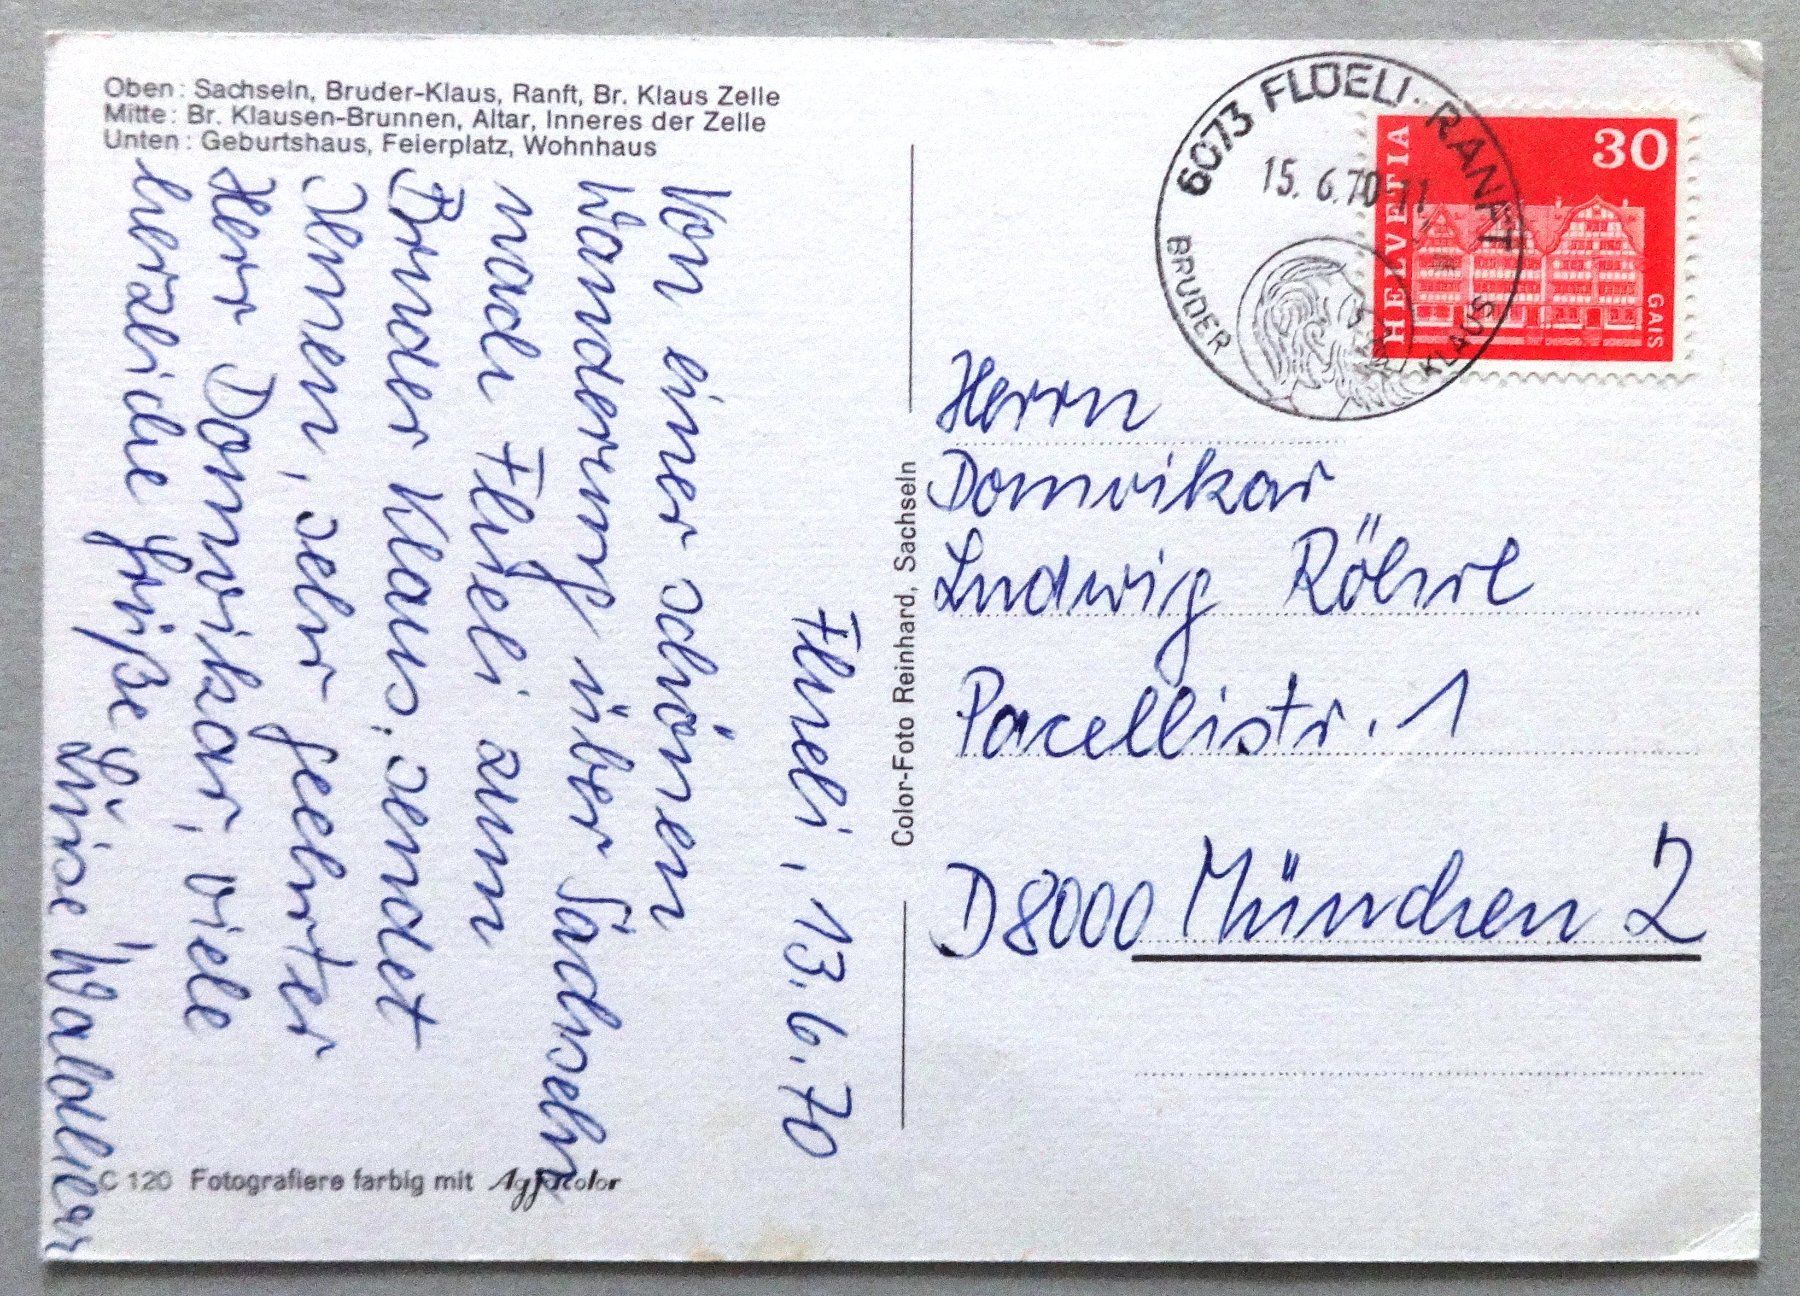 Oben: Sachseln, Bruder-Klaus, Ranft, Br. Klaus Zelle
Mitte: Br. Klausen-Brunnen, Altar, Inneres der Zelle
Unten: Geburtshaus, Feierplatz, Wohnhaus
Flüeli, 13.6.70
Von einer schönen
Wanderung über Sachseln
nach Flüeli zum
Bruder Klaus, sendet
Ihnen, sehr geehrter
Herr Domvikar, viele
herzliche Grüße
Luise Waldherr
C 120 Fotografiere farbig mit Agfacolor
Color-Foto Reinhard, Sachseln
6073 FLÜELI-RANFT
15.6.70-11
BRUDER KLAUS
HELVETIA
30
GAIS
Herrn
Domvikar
Ludwig Röhrl
Pacellistr. 1
D8000 München 2